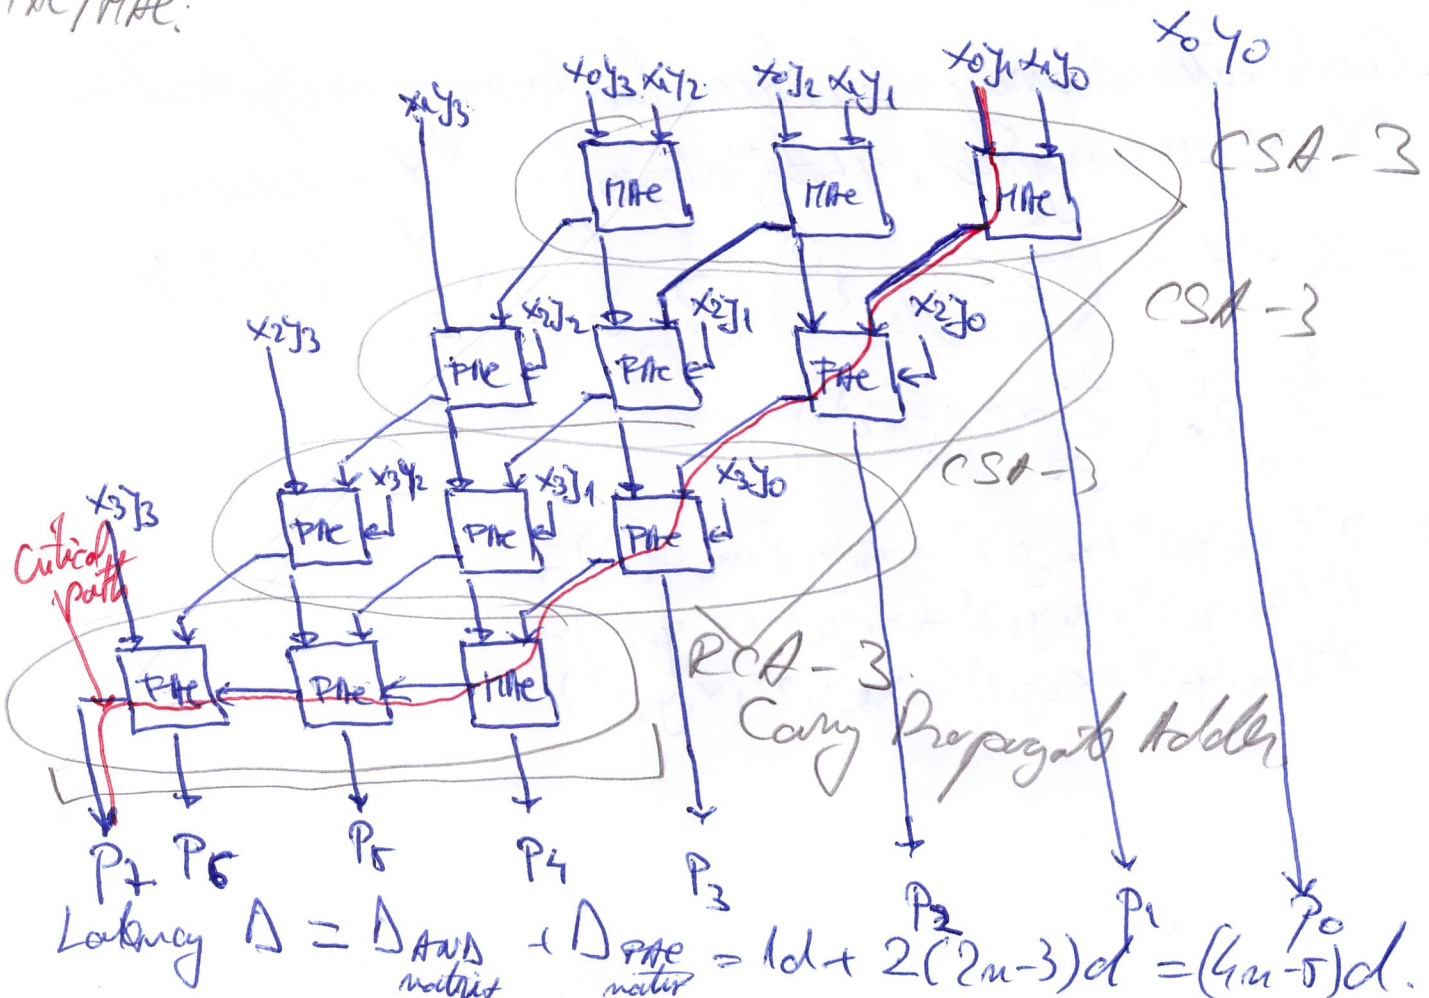 x₀y₀
x₁y₃ x₀y₃ x₁y₂ x₀y₂ x₁y₁ x₀y₁ x₁y₀
CSA-3
MAC MAC MAC
CSA-3
x₂y₃ x₂y₂ x₂y₁ x₂y₀
PAC PAC PAC
CSA-3
x₃y₃ x₃y₂ x₃y₁ x₃y₀
PAC PAC PAC
Critical
path
RCA-3.
PAC PAC MAC
Carry Propagate Adder
P₇ P₆ P₅ P₄ P₃ P₂ P₁ P₀
Latency Δ = Δ AND matrix + Δ PAC matrix = 1d + 2(2n-3)d = (4n-5)d.